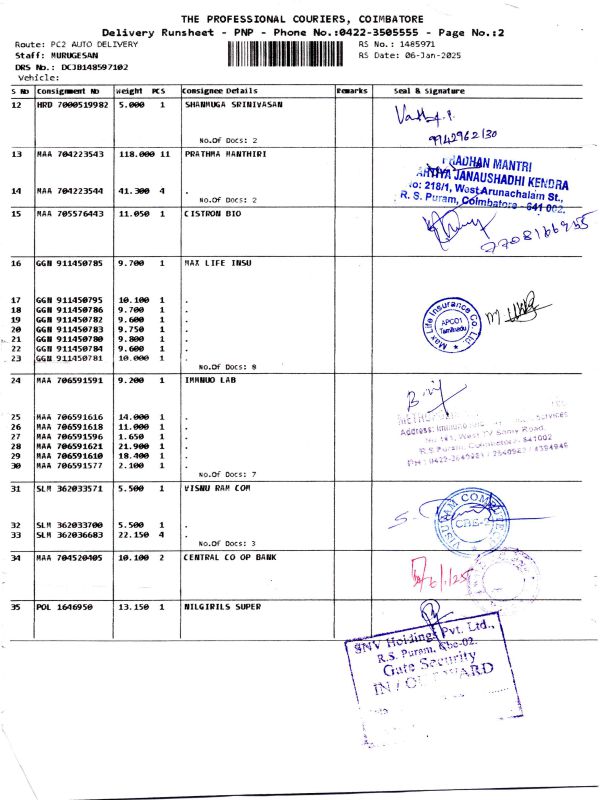 THE PROFESSIONAL COURIERS, COIMBATORE
Delivery Runsheet - PNP - Phone No.:0422-3505555 - Page No.:2
Route: PC2 AUTO DELIVERY RS No.: 1485971
Staff: MURUGESAN RS Date: 06-Jan-2025
DRS No.: DCJB148597102
Vehicle:
S No Consignment No Weight PCS Consignee Details Remarks Seal & Signature
12 HRD 7000519982 5.000 1 SHANMUGA SRINIVASAN
No.Of Docs: 2
9942962130
13 MAA 704223543 118.000 11 PRATHMA MANTHIRI
14 MAA 704223544 41.300 4 .
No.Of Docs: 2
PRADHAN MANTRI
JANAUSHADHI KENDRA
No: 218/1, West Arunachalam St.,
R. S. Puram, Coimbatore - 641 002.
15 MAA 705576443 11.050 1 CISTRON BIO
7708166955
16 GGN 911450785 9.700 1 MAX LIFE INSU
17 GGN 911450795 10.100 1 .
18 GGN 911450786 9.700 1 .
19 GGN 911450782 9.600 1 .
20 GGN 911450783 9.750 1 .
21 GGN 911450780 9.800 1 .
22 GGN 911450784 9.600 1 .
23 GGN 911450781 10.000 1 .
No.Of Docs: 8
Max Life Insurance Co. Ltd.
APC01
Tamilnadu
24 MAA 706591591 9.200 1 IMMNUO LAB
25 MAA 706591616 14.000 1 .
26 MAA 706591618 11.000 1 .
27 MAA 706591596 1.650 1 .
28 MAA 706591621 21.900 1 .
29 MAA 706591610 18.400 1 .
30 MAA 706591577 2.100 1 .
No.Of Docs: 7
Services
West TV Samy Road,
R.S.Puram, Coimbatore, 641002
31 SLM 362033571 5.500 1 VISNU RAM COM
32 SLM 362033700 5.500 1 .
33 SLM 362036683 22.150 4 .
No.Of Docs: 3
CBE-2
34 MAA 704520405 10.100 2 CENTRAL CO OP BANK
6/1/25
35 POL 1646950 13.150 1 NILGIRILS SUPER
SNV Holdings Pvt. Ltd.,
R.S. Puram, Cbe-02.
Gate Security
IN / OUTWARD